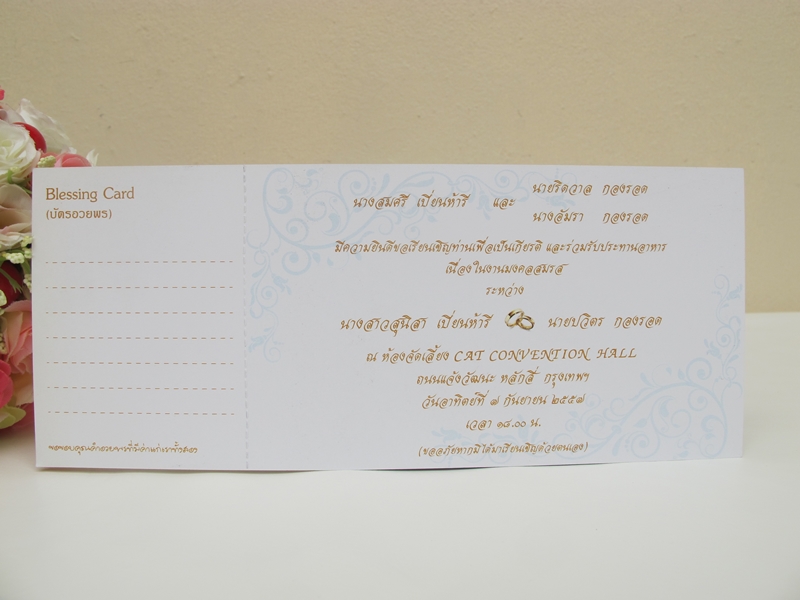 Blessing Card
(บัตรอวยพร)
นายริดวาล กองรอด
นางสมศรี เปี่ยนท้ารี และ
นางอัมรา กองรอด
มีความยินดีขอเรียนเชิญท่านเพื่อเป็นเกียรติ และร่วมรับประทานอาหาร
เนื่องในงานมงคลสมรส
ระหว่าง
นางสาวสุนิสา เปี่ยนท้ารี นายปวิตร กองรอด
ณ ห้องจัดเลี้ยง CAT CONVENTION HALL
ถนนแจ้งวัฒนะ หลักสี่ กรุงเทพฯ
วันอาทิตย์ที่ ๗ กันยายน ๒๕๕๗
เวลา ๑๘.๐๐ น.
(ขออภัยหากมิได้มาเรียนเชิญด้วยตนเอง)